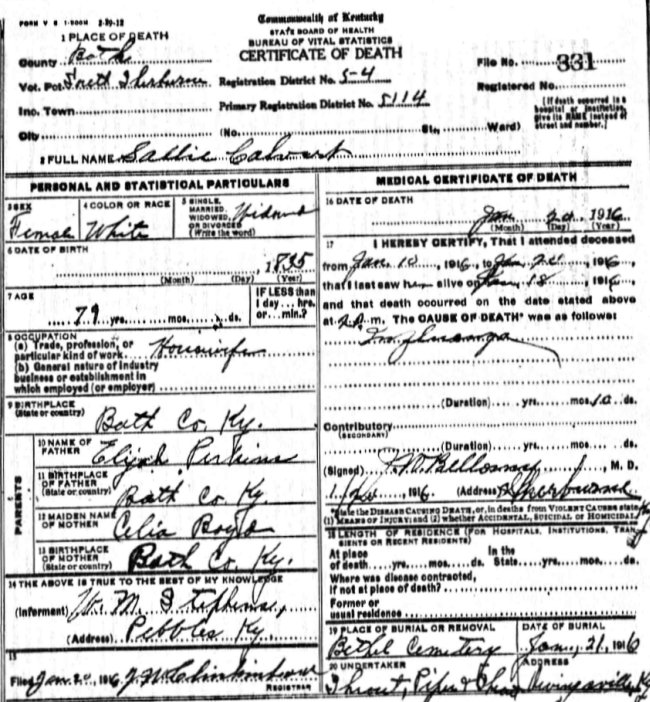 FORM V S 1-500M 2-29-12
Commonwealth of Kentucky
STATE BOARD OF HEALTH
BUREAU OF VITAL STATISTICS
CERTIFICATE OF DEATH
1 PLACE OF DEATH
County Bath
Vot. Pct. Sherburne
Inc. Town
City
Registration District No. 5-4
Primary Registration District No. 5114
(No. St., Ward)
File No. 331
Registered No.
[If death occurred in a hospital or institution, give its NAME instead of street and number.]
2 FULL NAME Sallie Calvert
PERSONAL AND STATISTICAL PARTICULARS
3 SEX
Female
4 COLOR OR RACE
White
5 SINGLE, MARRIED, WIDOWED, OR DIVORCED (Write the word) Widow
6 DATE OF BIRTH
1835
(Month) (Day) (Year)
7 AGE
79 yrs. mos. ds.
IF LESS than 1 day... hrs. or... min.?
8 OCCUPATION
(a) Trade, profession, or particular kind of work Housewife
(b) General nature of industry business or establishment in which employed (or employer)
9 BIRTHPLACE
(State or country) Bath Co. Ky.
PARENTS
10 NAME OF FATHER Elijah Perkins
11 BIRTHPLACE OF FATHER (State or country) Bath Co Ky
12 MAIDEN NAME OF MOTHER Celia Boyd
13 BIRTHPLACE OF MOTHER (State or country) Bath Co. Ky.
14 THE ABOVE IS TRUE TO THE BEST OF MY KNOWLEDGE
(Informant) W. M. Stephens,
(Address) Pebbles Ky.
15
Filed Jan 20, 1916
REGISTRAR
MEDICAL CERTIFICATE OF DEATH
16 DATE OF DEATH
Jan 20 1916
(Month) (Day) (Year)
17 I HEREBY CERTIFY, That I attended deceased
from Jan. 10, 1916, to Jan 20, 1916,
that I last saw her alive on Jan 18, 1916,
and that death occurred on the date stated above
at m. The CAUSE OF DEATH* was as follows:
Influenza
(Duration) yrs. mos. 10 ds.
Contributory
(SECONDARY)
(Duration) yrs. mos. ds.
(Signed) M. D.
1916 (Address) Sherburne
*State the DISEASE CAUSING DEATH, or, in deaths from VIOLENT CAUSES state (1) MEANS OF INJURY; and (2) whether ACCIDENTAL, SUICIDAL OR HOMICIDAL.
18 LENGTH OF RESIDENCE (FOR HOSPITALS, INSTITUTIONS, TRANSIENTS OR RECENT RESIDENTS)
At place of death yrs. mos. ds. In the State yrs. mos. ds.
Where was disease contracted,
if not at place of death?
Former or
usual residence
19 PLACE OF BURIAL OR REMOVAL
Bethel Cemetery
DATE OF BURIAL
Jan. 21, 1916
20 UNDERTAKER
ADDRESS
Owingsville, Ky